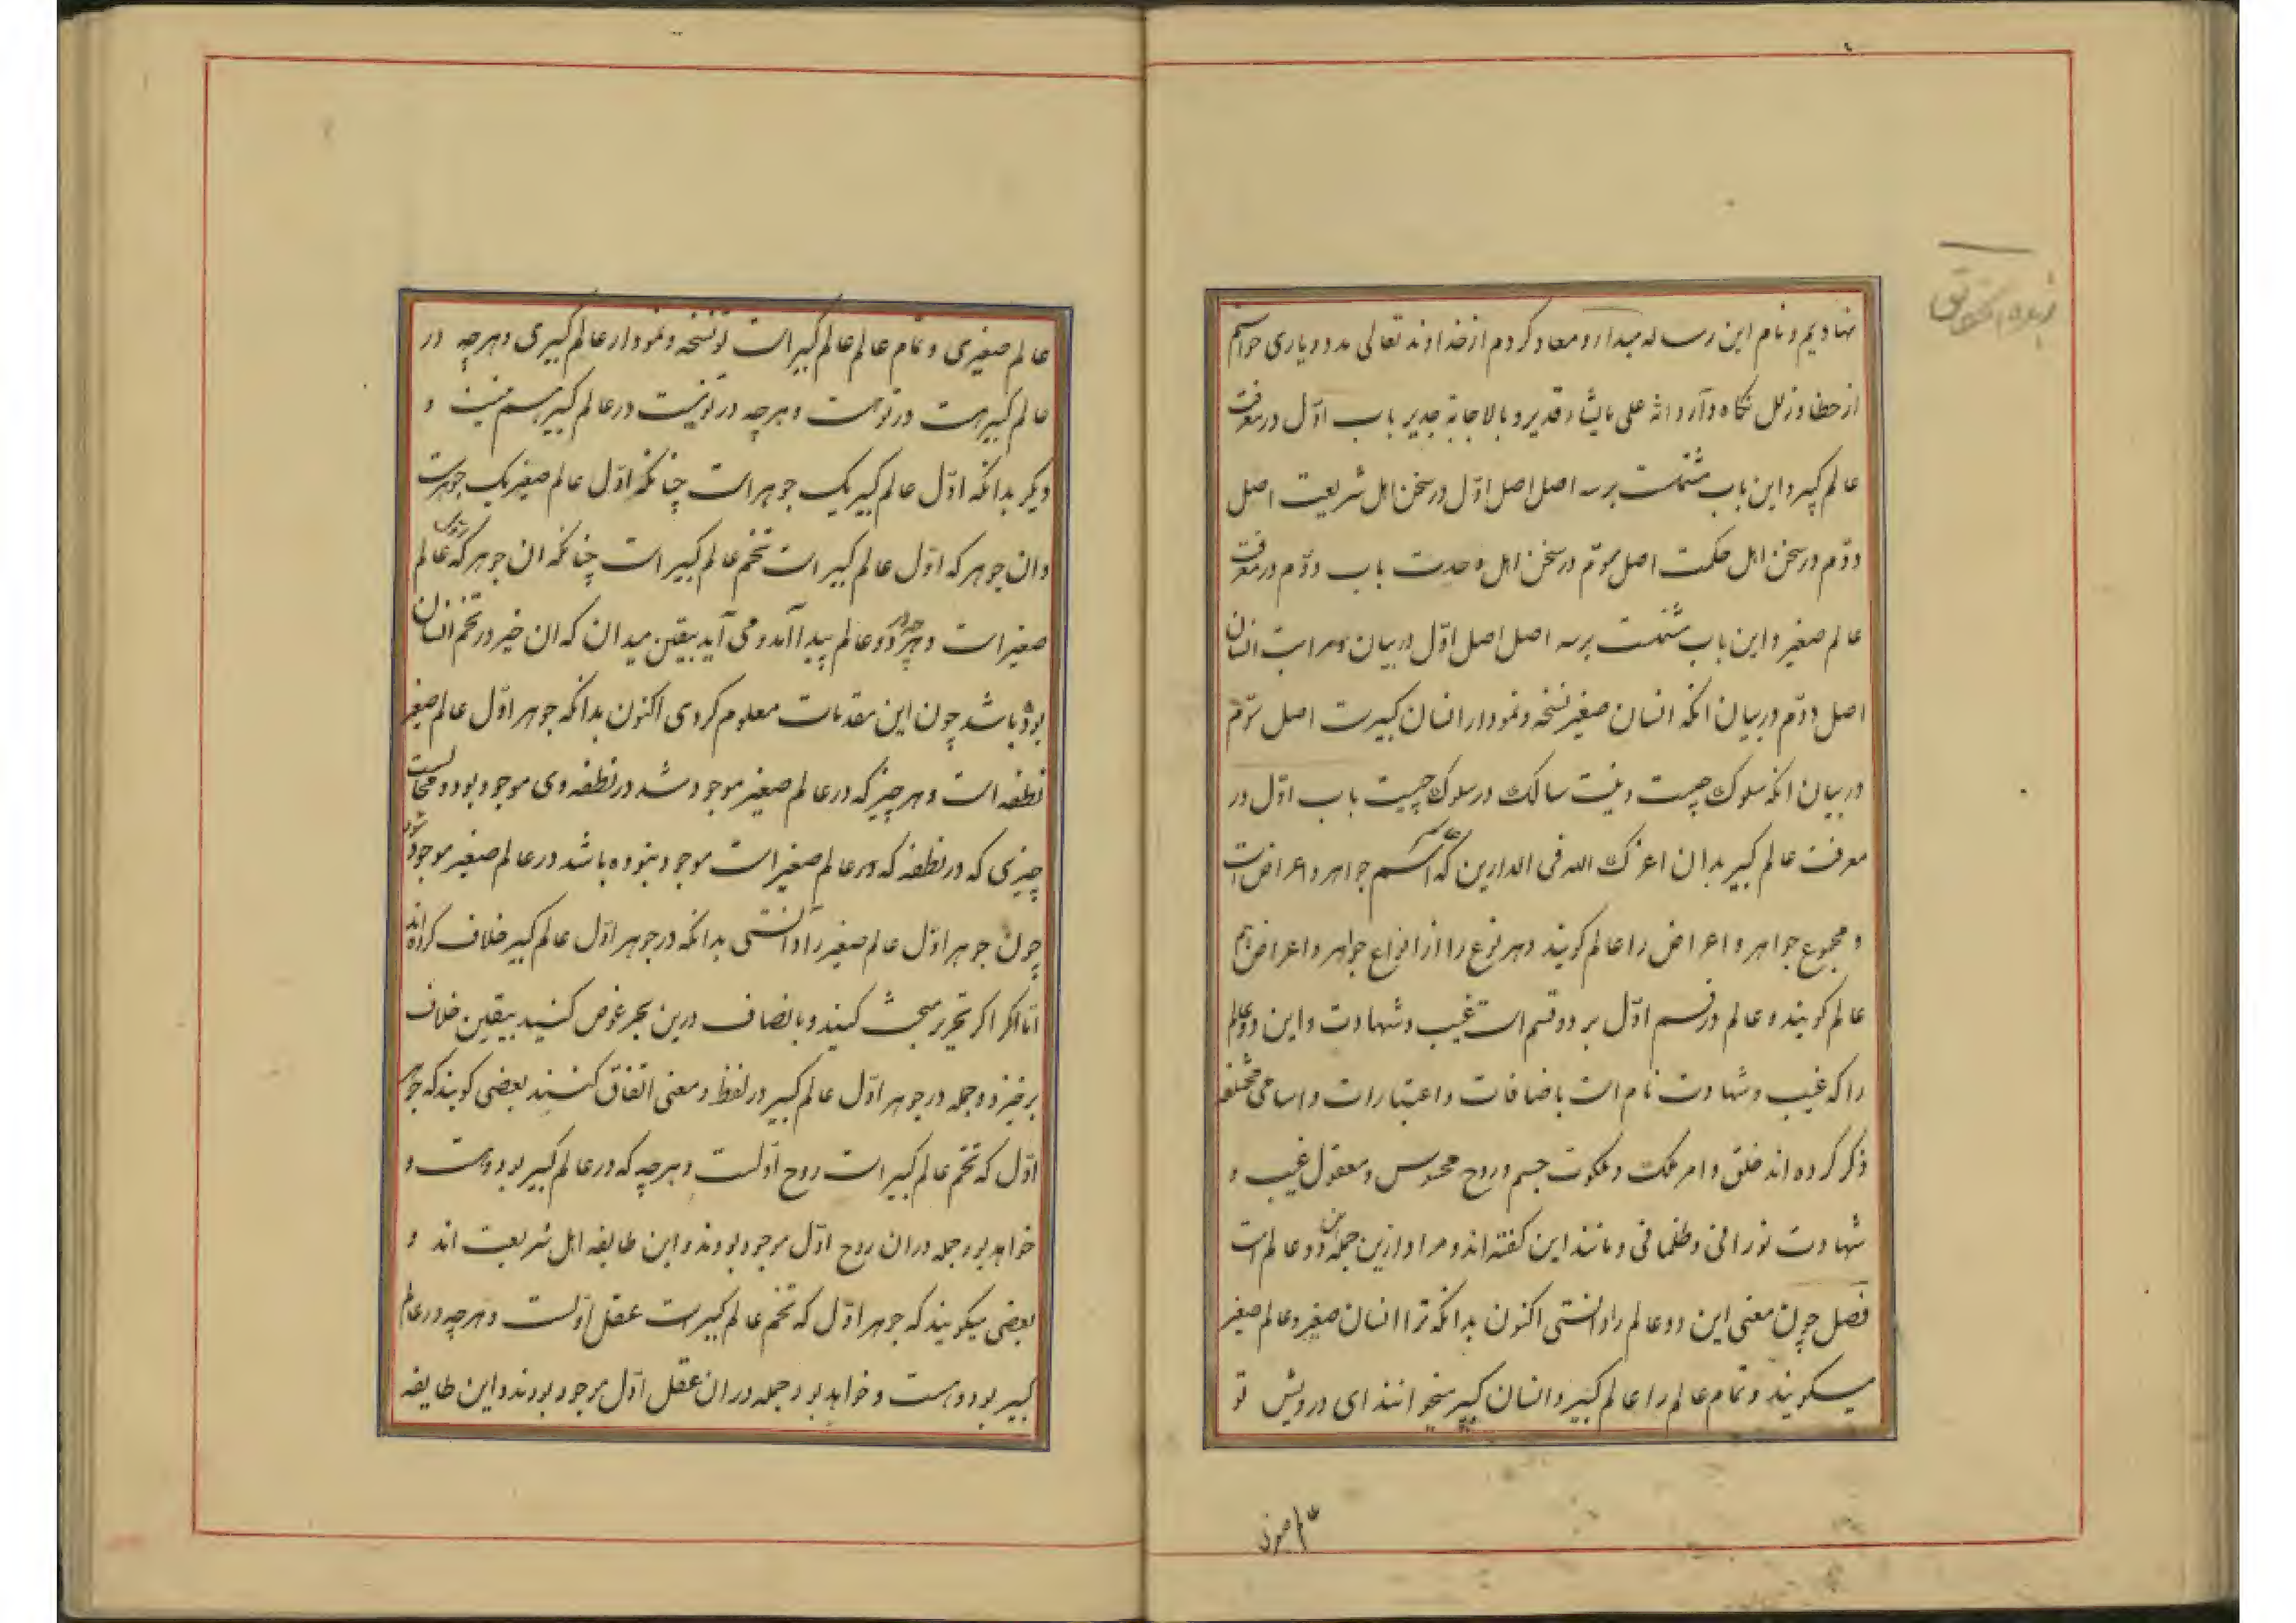 زبدة الحقایق
نهادیم و نام این رساله مبدأ و معاد کردم از خداوند تعالی مدد و یاری خواستم
از خطا و زلل نگاه دارد انه علی ما یشاء قدیر و بالاجابة جدیر باب اوّل در معرفت
عالم کبیر و این باب مشتملست بر سه اصل اصل اوّل در سخن اهل شریعت اصل
دوّم در سخن اهل حکمت اصل سوّم در سخن اهل وحدت باب دوّم در معرفت
عالم صغیر و این باب مشتملست بر سه اصل اصل اوّل در بیان مراتب انسان
اصل دوّم در بیان انکه انسان صغیر نسخه و نمودار انسان کبیرست اصل سوّم
در بیان انکه سلوک چیست و نیت سالک در سلوک چیست باب اوّل در
معرفت عالم کبیر بدان اعزک الله فی الدارین که عالم اسم جواهر و اعراض است
و مجموع جواهر و اعراض را عالم کویند و هر نوع را از انواع جواهر و اعراض هم
عالم کویند و عالم در قسم اوّل بر دو قسم است غیب و شهادت و این دو عالم
را که غیب و شهادت نام است باضافات و اعتبارات و اسامی مختلفه
ذکر کرده اند خلق و امر ملک و ملکوت جسم و روح محسوس و معقول غیب و
شهادت نورانی و ظلمانی و مانند این کفته اند و مراد ازین جمله این دو عالم است
فصل چون معنی این دو عالم را دانستی اکنون بدانکه ترا انسان صغیر و عالم صغیر
میکویند و تمام عالم را عالم کبیر و انسان کبیر میخوانند ای درویش تو
عالم صغیری و تمام عالم عالم کبیر است تو نسخه و نمودار عالم کبیری و هرچه در
عالم کبیر هست در تو هست و هرچه در تو نیست در عالم کبیر هم نیست و
دیکر بدانکه اوّل عالم کبیر یک جوهر است چنانکه اوّل عالم صغیر یک جوهرست
و ان جوهر که اوّل عالم کبیر است تخم عالم کبیر است چنانکه ان جوهر که اول عالم
صغیر است و هرچه در دو عالم پیدا آمد و می آید بیقین میدان که ان چیز در تخم انسان
بوده باشد چون این مقدمات معلوم کردی اکنون بدانکه جوهر اوّل عالم صغیر
نطفه است و هر چیز که در عالم صغیر موجود شد در نطفه وی موجود بود و محالست
چیزی که در نطفه که در عالم صغیر است موجود نبوده باشد در عالم صغیر موجود شود
چون جوهر اوّل عالم صغیر را دانستی بدانکه در جوهر اوّل عالم کبیر خلاف کرده اند
امّا اکر اکر تحریر مبحث کنید و بانصاف درین بحر غوض کنید بیقین خلاف
برخیزد و جمله در جوهر اوّل عالم کبیر در لفظ و معنی اتفاق کنند بعضی کویند که جوهر
اوّل که تخم عالم کبیر است روح اوّلست و هرچه که در عالم کبیر بود و هست و
خواهد بود جمله در ان روح اوّل موجود بودند و این طایفه اهل شریعت اند و
بعضی میکویند که جوهر اوّل که تخم عالم کبیرست عقل اوّلست و هرچه در عالم
کبیر بود و هست و خواهد بود جمله در ان عقل اوّل موجود بودند و این طایفه